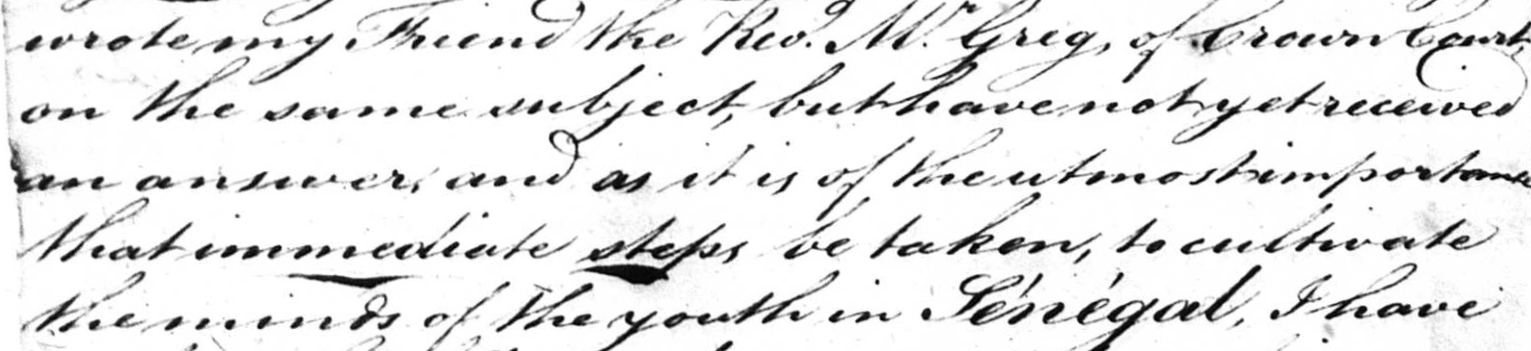 wrote my Friend the Revd. Mr. Greig, of Crown Court,
on the same subject, but have not yet received
an answer, and as it is of the utmost importance
that immediate steps be taken, to cultivate
the minds of the youth in Sénégal, I have